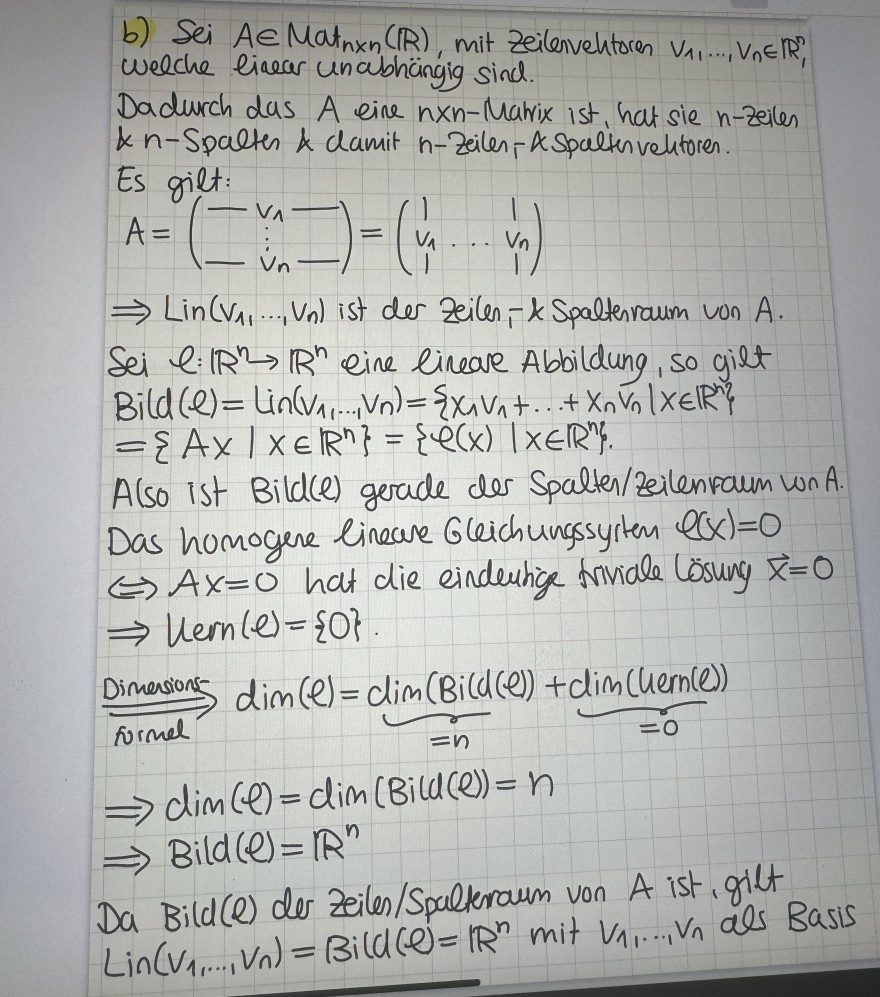 b) Sei A∈Matₙₓₙ(ℝ), mit Zeilenvektoren v₁,...,vₙ∈ℝⁿ,
welche linear unabhängig sind.
Dadurch das A eine n×n-Matrix ist, hat sie n-Zeilen
& n-Spalten & damit n-Zeilen,-& Spaltenvektoren.
Es gilt:
A = (— v₁ — ⋮ — vₙ —) = (| v₁ | ... | vₙ |)
⇒ Lin(v₁,...,vₙ) ist der Zeilen,-& Spaltenraum von A.
Sei φ:ℝⁿ→ℝⁿ eine lineare Abbildung, so gilt
Bild(φ)= Lin(v₁,...,vₙ)={x₁v₁+...+xₙvₙ | x∈ℝⁿ}
={ Ax | x∈ℝⁿ} = {φ(x) | x∈ℝⁿ}.
Also ist Bild(φ) gerade der Spalten/Zeilenraum von A.
Das homogene lineare Gleichungssystem φ(x)=0
⇔ Ax=0 hat die eindeutige triviale Lösung x⃗=0
⇒ Kern(φ)={0}.
Dimensions-
formel
⇒ dim(φ)= dim(Bild(φ)) + dim(Kern(φ))
=n =0
⇒ dim(φ)= dim(Bild(φ))= n
⇒ Bild(φ)=ℝⁿ
Da Bild(φ) der Zeilen/Spaltenraum von A ist, gilt
Lin(v₁,...,vₙ)= Bild(φ)=ℝⁿ mit v₁,...,vₙ als Basis